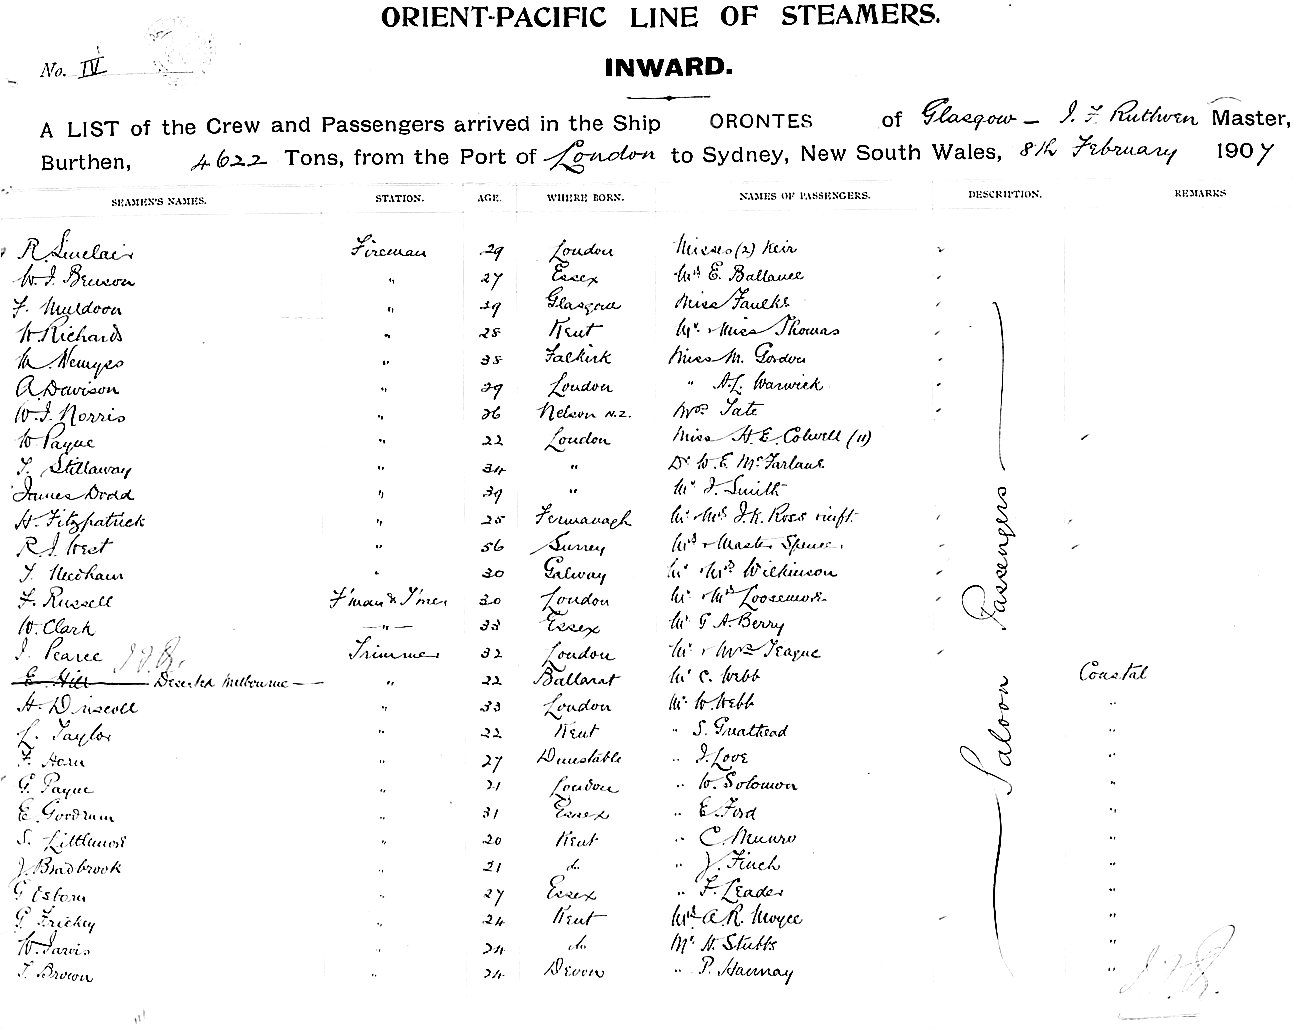 ORIENT-PACIFIC LINE OF STEAMERS.
No. IV
INWARD.
A LIST of the Crew and Passengers arrived in the Ship ORONTES of Glasgow - J. F. Ruthven Master,
Burthen, 4622 Tons, from the Port of London to Sydney, New South Wales, 8th February 1907
SEAMEN'S NAMES. STATION. AGE. WHERE BORN. NAMES OF PASSENGERS. DESCRIPTION. REMARKS
R. Sinclair Fireman 29 London Misses (2) Keir
W. J. Benson " 27 Essex Mrs E. Ballance
F. Muldoon " 39 Glasgow Miss Faulks
W Richards " 28 Kent Mr & Miss Thomas
Wemyss " 38 Falkirk Miss M. Gordon
A. Davison " 29 London " A.L. Warwick
W. J. Norris " 26 Nelson N.Z. Mrs Tate
W Payne " 22 London Miss H. E. Colwell (11)
T. Stillaway " 34 " Dr W. E. McFarlane
James Dodd " 39 " Mr J. Smith
H. Fitzpatrick " 25 Fermanagh Mr Mrs J. K. Ross
R J West " 56 Surrey Mrs & Master Spence
T. Needham " 30 Galway Mr Mrs Wilkinson
F. Russell F'man & T'mer 30 London Mr Mrs Loosemore
W. Clark " 33 Essex Mr G A. Berry
J. Pearce Trimmer 32 London Mr & Mrs Teague
E. Hill Deserted Melbourne " 22 Ballarat Mr C. Webb Coastal
H. Driscoll " 33 London Mr W. Webb "
L. Taylor " 22 Kent " S. Gnathead "
F. Horn " 27 Dunstable " J. Love "
G. Payne " 21 London " W. Solomon "
E. Goodrum " 31 Essex " E. Ford "
S. Littlewood " 20 Kent " C. Munro "
J. Bradbrook " 21 do " J. Finch "
G Esborn " 27 Essex " F. Leader "
G. Frickey " 24 Kent Mrs A. R. Moyce "
W. Jarvis " 24 do Mr H. Stubbs "
T. Brown " 24 Devon " P. Hannay "
Saloon Passengers